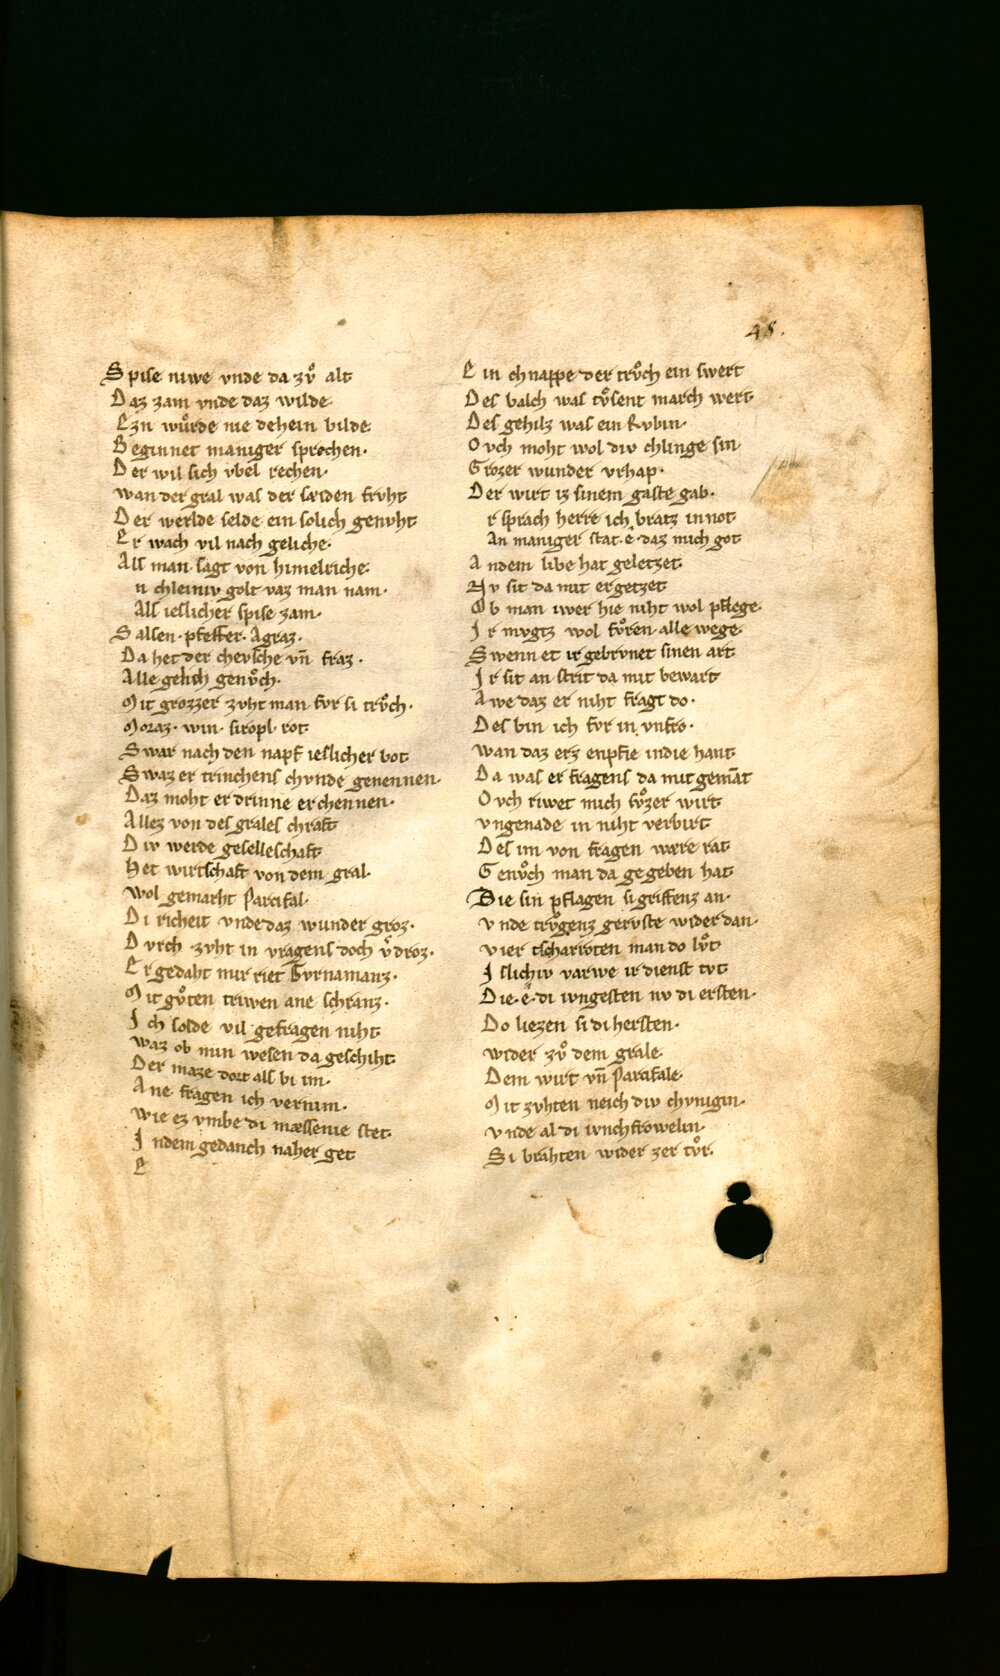 48.
Spise niwe vnde da zvͦ alt
Daz zam vnde daz wilde.
Ezn wuͦrde nie dehein bilde.
Beginnet maniger sprechen.
Der wil sich vbel rechen.
wan der gral was der sælden frvht
Der werlde selde ein solich genvht
Er wach vil nach geliche.
Als man sagt von himelriche.
n chleiniv golt vaz man nam.
Als ieslicher spise zam.
Salsen. pfeffer. Agraz.
Da het der chevsche vn̄ fraz.
Alle gelich genvͦch.
Mit grozzer zvht man fvr si trvͦch.
Moraz. win. siropl rot.
Swar nach den napf ieslicher bot.
Swaz er trinchens chvnde genennen.
Daz moht er drinne erchennen.
Allez von des grales chraft
Div werde geselleschaft
Het wirtschaft von dem gral.
wol gemarht Parcifal.
Di richeit vnde daz wunder groz.
Dvrch zvht in vragens doch v̓droz.
Er gedaht mir riet Gvrnamanz.
Mit gvͦten triwen ane schranz.
Ich solde vil gefragen niht
waz ob min wesen da geschiht
Der maze dort als bi im.
Ane fragen ich vernim.
wie ez vmbe di mæssenie stet.
Indem gedanch naher get
E
Ein chnappe der trvͦch ein swert
Des balch was tvͦsent march wert.
Des gehilz was ein Rvbin.
Ovch moht wol div chlinge sin
Grozer wunder vrhap.
Der wirt iz sinem gaste gab.
r sprach herre ich bratz in not
An maniger stat. e daz mich got
Andem libe hat geletzet.
Nv sit da mit ergetzet
Ob man iwer hie niht wol pflege.
Ir mvgtz wol fvͦren alle wege.
Swenn et ir gebrvnet sinen art
Ir sit an strit da mit bewart
Awe daz er niht fragt do.
Des bin ich fvr in vnfro.
wan daz erz enpfie indie hant
Da was er fragens da mit gemāt
Ovch riwet mich svͦzer wirt
vngenade in niht verbirt
Des im von fragen wære rat
Genvͦch man da gegeben hat
Die sin pflagen si griffenz an.
vnde trvͦgenz gervste wider dan.
vier tscharioten man do lvͦt
Islichiv varwe ir dienst tvt
Die. e. di ivngesten nv di ersten.
Do liezen si di hersten.
wider zvͦ dem grale.
Dem wirt vn̄ Parcifale.
Mit zvhten neich div chvnigin.
vnde al di ivnchfrowelin.
Si brahten wider zer tvͦr.